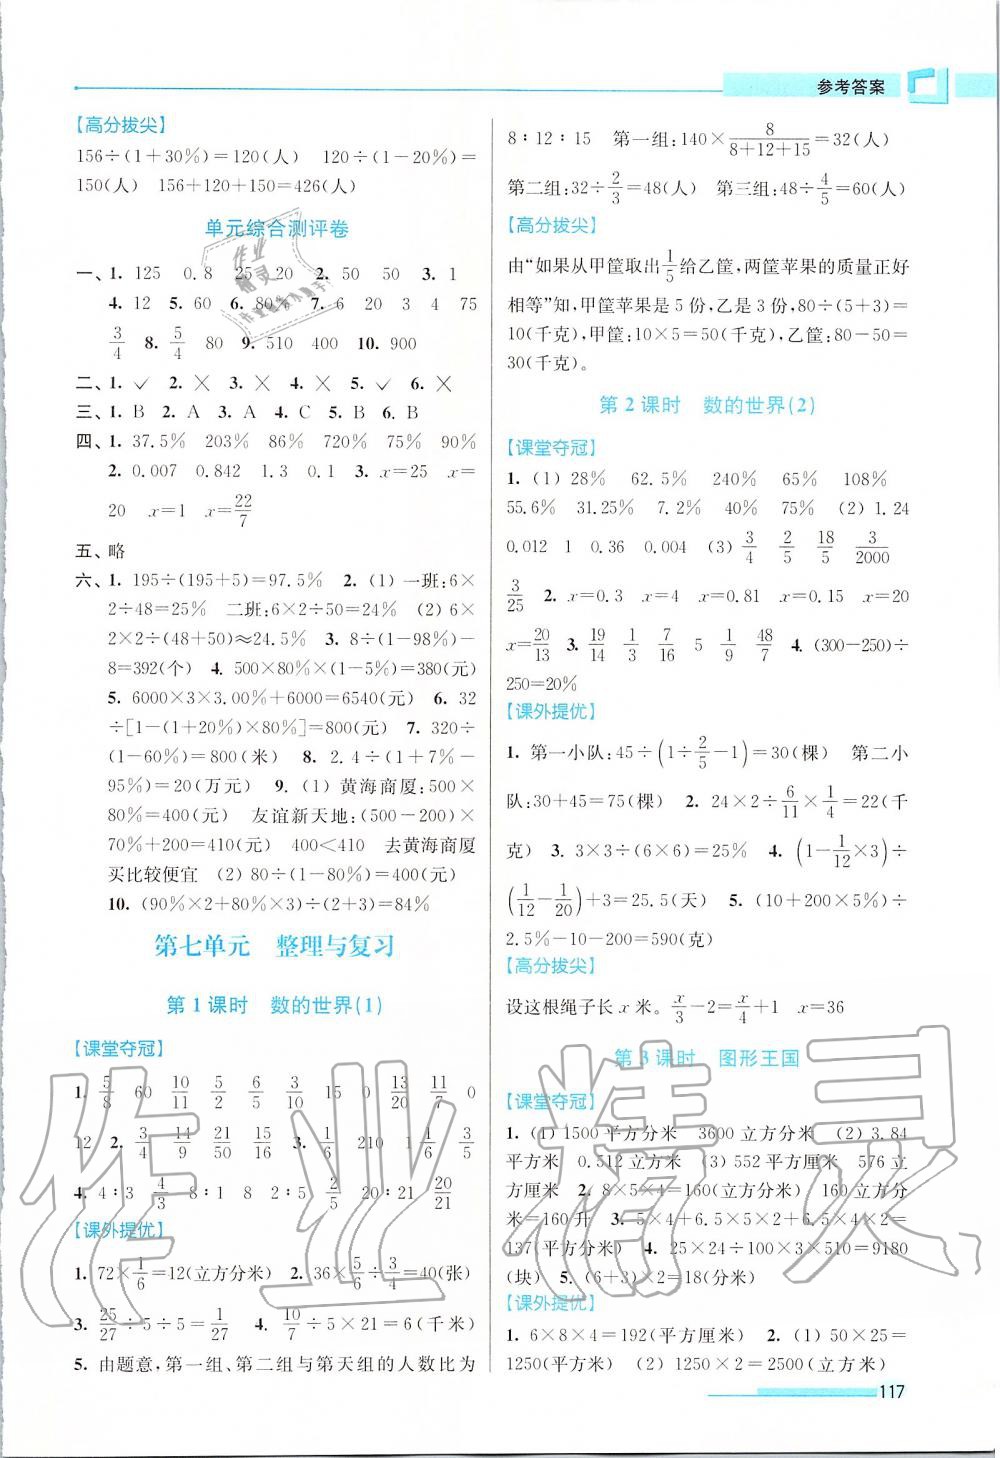 参考答案
【高分拔尖】
156÷(1+30%)=120(人) 120÷(1-20%)=
150(人) 156+120+150=426(人)
单元综合测评卷
一、1. 125 0.8 25 20 2. 50 50 3. 1
4. 12 5. 50 6. 80% 7. 6 20 3 4 75
3/4 8. 5/4 80 9. 510 400 10. 900
二、1. ✓ 2. ✕ 3. ✕ 4. ✕ 5. ✓ 6. ✕
三、1. B 2. A 3. A 4. C 5. B 6. B
四、1. 37.5% 203% 86% 720% 75% 90%
2. 0.007 0.842 1.3 0.1 3. x=25 x=
20 x=1 x=22/7
五、略
六、1. 195÷(195+5)=97.5% 2. (1) 一班:6×
2÷48=25% 二班:6×2÷50=24% (2) 6×
2×2÷(48+50)≈24.5% 3. 8÷(1-98%)-
8=392(个) 4. 500×80%×(1-5%)=380(元)
5. 6000×3×3.00%+6000=6540(元) 6. 32
÷[1-(1+20%)×80%]=800(元) 7. 320÷
(1-60%)=800(米) 8. 2.4÷(1+7%-
95%)=20(万元) 9. (1) 黄海商厦:500×
80%=400(元) 友谊新天地:(500-200)×
70%+200=410(元) 400<410 去黄海商厦
买比较便宜 (2) 80÷(1-80%)=400(元)
10. (90%×2+80%×3)÷(2+3)=84%
第七单元 整理与复习
第1课时 数的世界(1)
【课堂夺冠】
1. 5/8 60 10/11 5/2 6/5 3/10 15 0 13/20 11/7 0
12 2. 3/4 14/9 21/50 15/16 3. 1/6 210 1/6 3/5
4. 4:3 4/3 8:1 8 2:5 2/5 20:21 20/21
【课外提优】
1. 72×1/6=12(立方分米) 2. 36×5/6÷3/4=40(张)
3. 25/27÷5÷5=1/27 4. 10/7÷5×21=6(千米)
5. 由题意,第一组、第二组与第天组的人数比为
8:12:15 第一组:140×8/(8+12+15)=32(人)
第二组:32÷2/3=48(人) 第三组:48÷4/5=60(人)
【高分拔尖】
由“如果从甲筐取出1/5给乙筐,两筐苹果的质量正好
相等”知,甲筐苹果是5份,乙是3份,80÷(5+3)=
10(千克),甲筐:10×5=50(千克),乙筐:80-50=
30(千克)。
第2课时 数的世界(2)
【课堂夺冠】
1. (1) 28% 62.5% 240% 65% 108%
55.6% 31.25% 7.2% 40% 75% (2) 1.24
0.012 1 0.36 0.004 (3) 3/4 2/5 18/5 3/2000
3/25 2. x=0.3 x=4 x=0.81 x=0.15 x=20
x=20/13 3. 19/14 1/3 7/16 5 1/9 48/7 4. (300-250)÷
250=20%
【课外提优】
1. 第一小队:45÷(1÷2/5-1)=30(棵) 第二小
队:30+45=75(棵) 2. 24×2÷6/11×1/4=22(千
克) 3. 3×3÷(6×6)=25% 4. (1-1/12×3)÷
(1/12-1/20)+3=25.5(天) 5. (10+200×5%)÷
2.5%-10-200=590(克)
【高分拔尖】
设这根绳子长x米。x/3-2=x/4+1 x=36
第3课时 图形王国
【课堂夺冠】
1. (1) 1500平方分米 3600立方分米 (2) 3.84
平方米 0.512立方米 (3) 552平方厘米 576立
方厘米 2. 8×5×4=160(立方分米) 160立方分
米=160升 3. 5×4+6.5×5×2+6.5×4×2=
137(平方分米) 4. 25×24÷100×3×510=9180
(块) 5. (6+3)×2=18(分米)
【课外提优】
1. 6×8×4=192(平方厘米) 2. (1) 50×25=
1250(平方米) (2) 1250×2=2500(立方米)
117